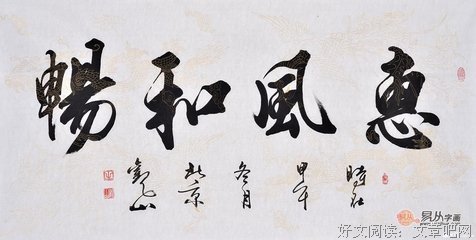 惠風和暢
時在
甲午
冬月
北京
易从字画
好文阅读：文章吧网